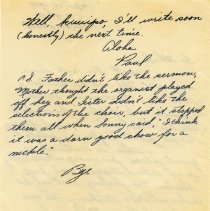 Well, kuuipo, I'll write soon
(honestly) the next time.
Aloha
Paul
P.S. Father didn't like the sermon,
Mother thought the organist played
off key and Sister didn't like the
selections of the choir, but it stopped
them all when Sonny said, "I think
it was a darn good show for a
nickle."
Bye